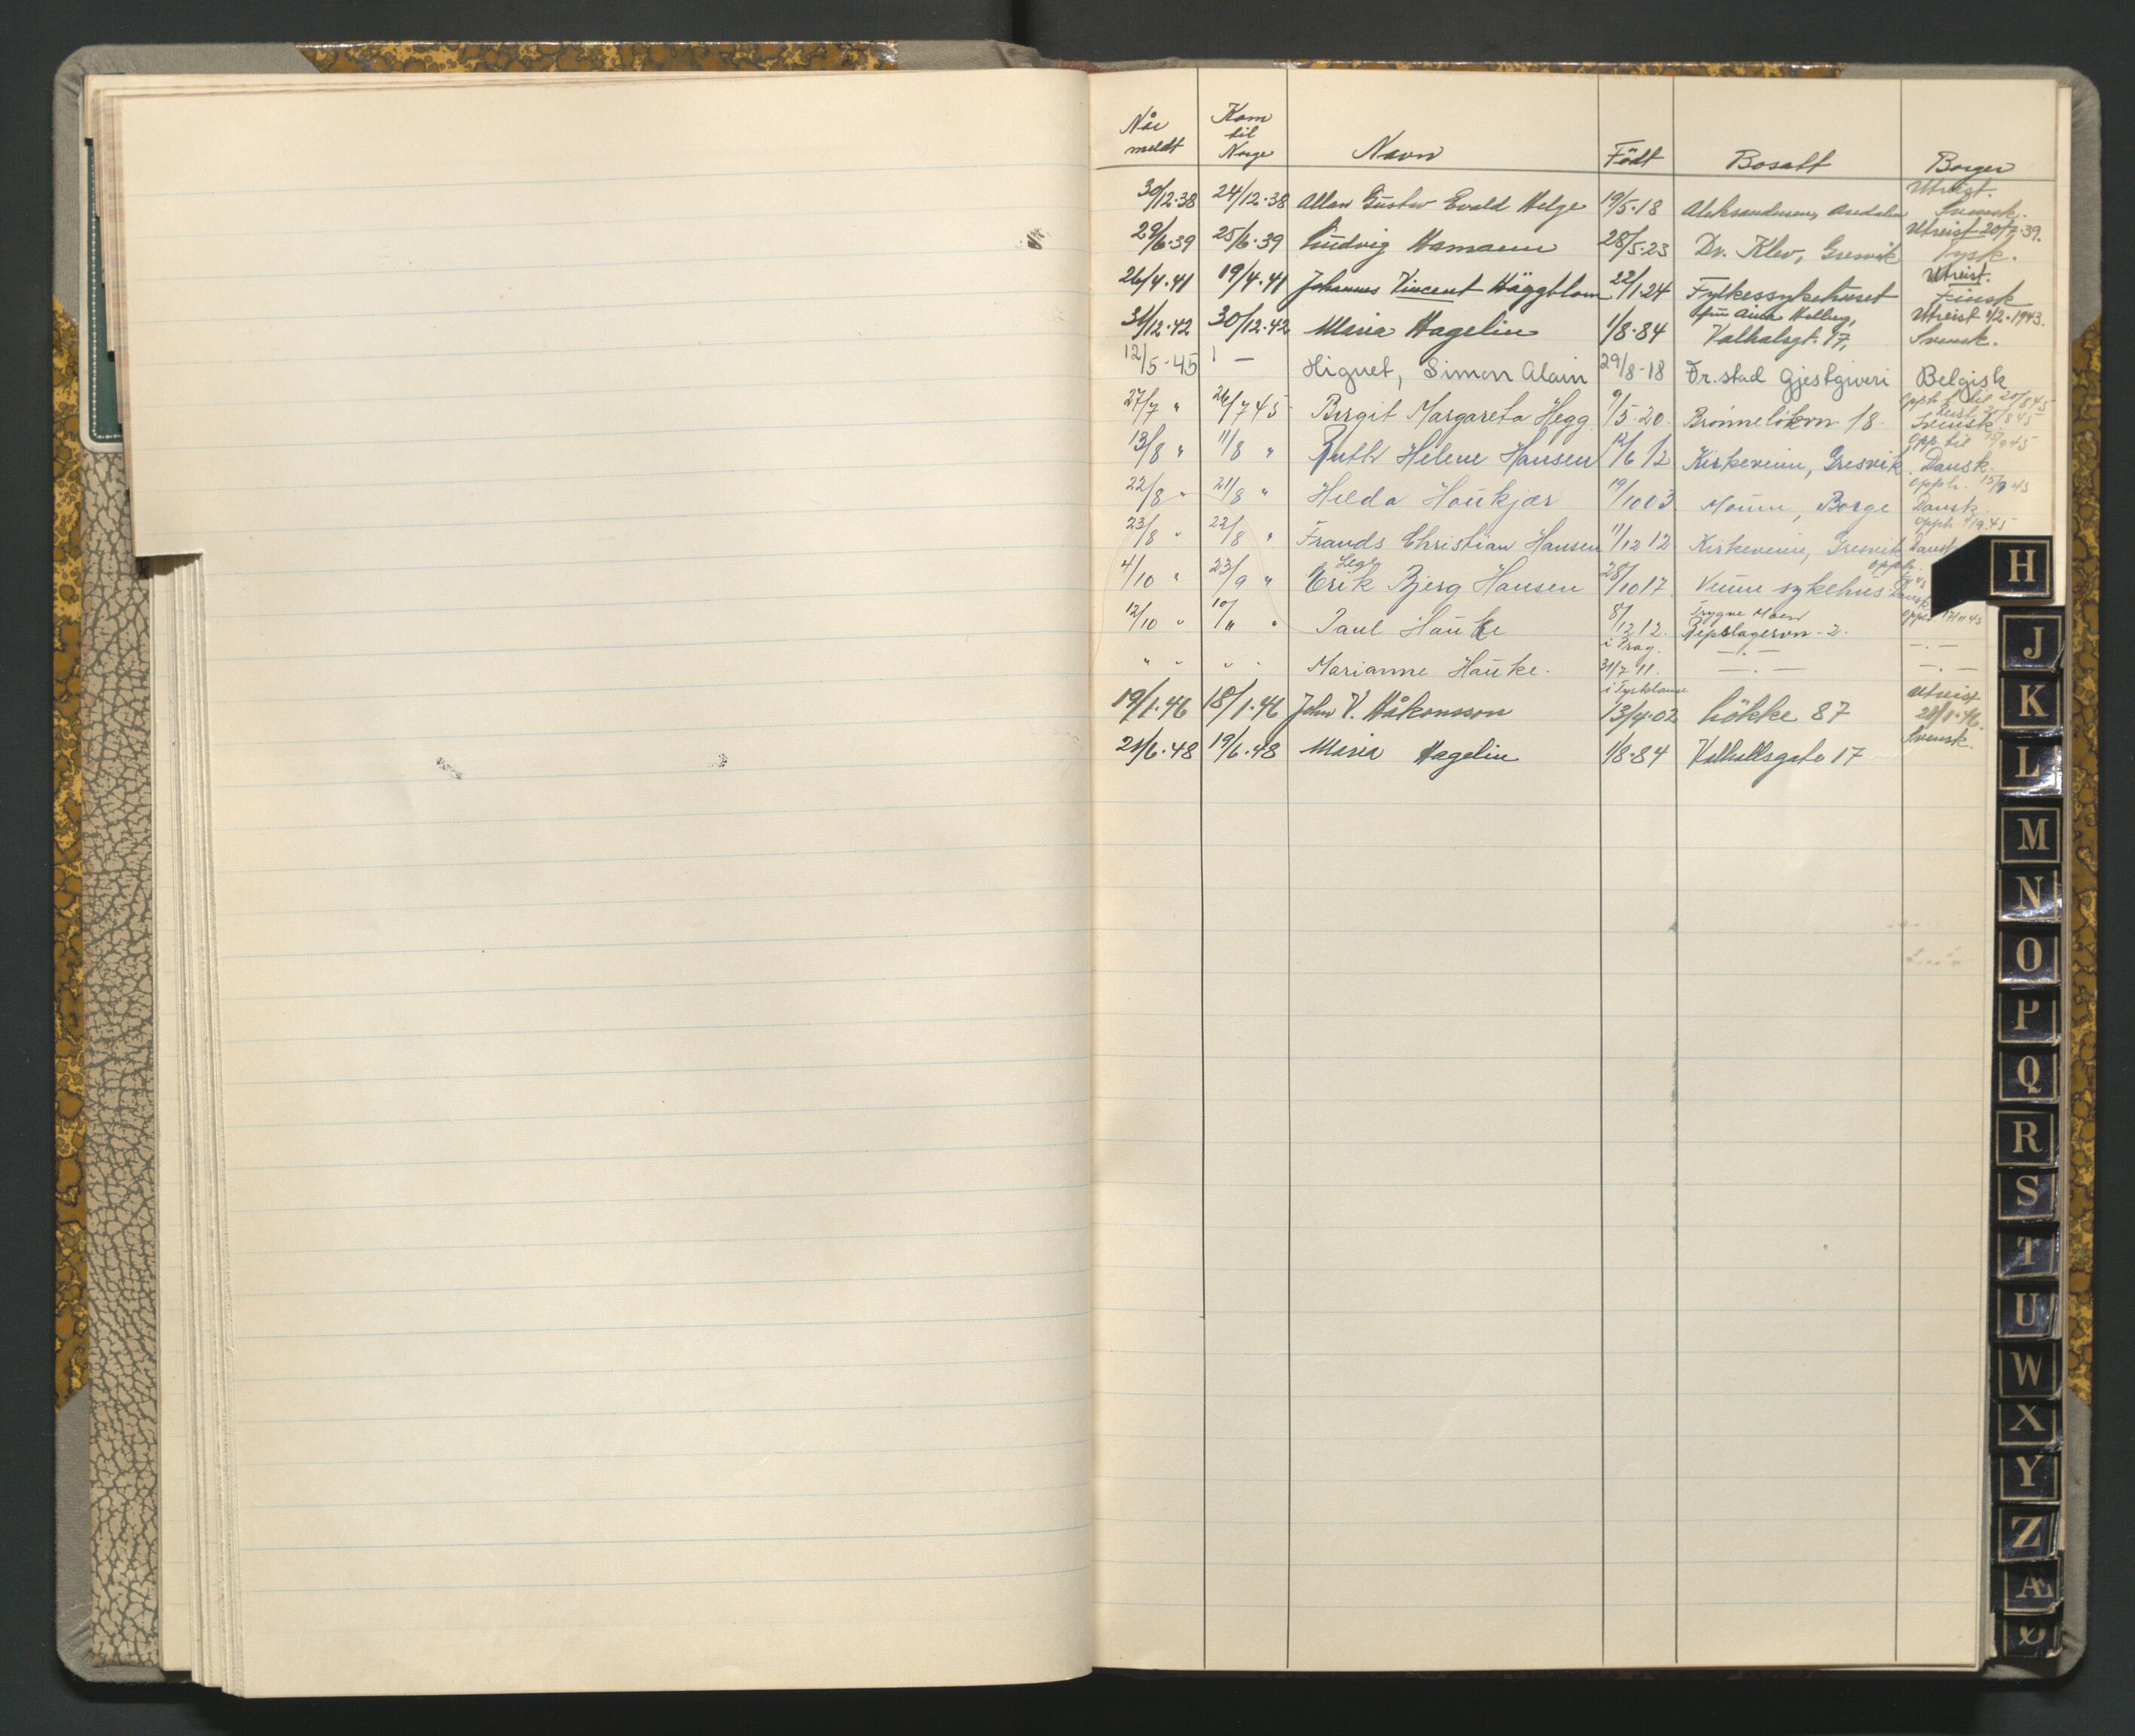 Når meldt Kom til Norge Navn Født Bosatt Borger
Utreist.
30/12·38 24/12·38 Allan Gustav Evald Helge 19/5·18 Svensk.
Utreist 20/7·39.
29/6·39 25/6·39 Ludvig Hamann 28/5·23 Dr. Klev, Gresvik Tysk.
Utreist.
26/4·41 19/4·41 Johannes Vincent Häggblom 22/1·24 Fylkessykehuset Finsk
Utreist 1/2·1943.
31/12·42 30/12·42 Maria Hagelin 1/8·84 Valhalsgt. 17, Svensk.
12/5-45 — Higuet, Simon Alain 29/8-18 Fr.stad Gjestgiveri Belgisk
27/7 " 26/7 45 Birgit Margareta Hegg 9/5·20 18. Svensk
13/8 " 11/8 " Ruth Helene Hansen 12/6 12 Kirkeveien, Gresvik. Dansk.
opph. 15/9 45
22/8 " 21/8 " Hilda Haukjær 19/10 03 Moum, Borge Dansk
23/8 " 22/8 " Frands Christian Hansen 11/12 12 Kirkeveien, Gresvik Dansk
Lege opph.
4/10 " 23/9 " Erik Bjerg Hansen 28/10 17 Veum sykehus Dansk
Trygve Moen
12/10 " 10/" " Paul Hauke 8/12 12. Repslagervn - 2. —·—
i Prag.
" " " " Marianne Hauke. 31/7 11. —·— —·—
i Tyskland
Utreist
19/1·46 18/1·46 John V. Håkonsson 13/4·02 Løkke 87
Svensk.
21/6·48 19/6·48 Maria Hagelin 1/8·84 Valhallsgate 17
H
J
K
L
M
N
O
P
Q
R
S
T
U
W
X
Y
Z
Æ
Ø